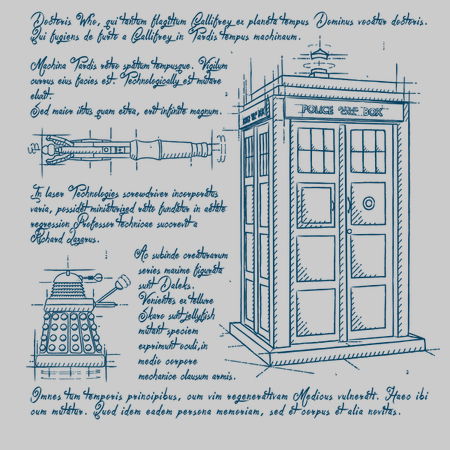 Doctoris Who, qui tantum flagitium Gallifrey ex planeta tempus Dominus vocatur doctoris.
Qui fugiens de furto a Gallifrey in Tardis tempus machinam.
Machina Tardis retro spatium tempusque. Vigilum
currus eius facies est. Technologically est mutare
eluit.
Sed maior intus quam extra, erit infinite magnum.
POLICE BOX
POLICE BOX
In laser Technologies screwdriver incorporatus
varia, possidet miniaturized ratio funditur in aetate
regression Professor technicae sucorevit a
Richard Lazarus.
Ac subinde creaturarum
series maxime figurata
sunt Daleks.
Venientes ex tellure
Skaro sunt jellyfish
mutant speciem
exprimunt oculi, in
medio corpore
mechanice clausum armis.
Omnes tum temporis principibus, cum vim regenerativam Medicus vulnerati. Haec ibi
cum mutatur. Quod idem eadem persona memoriam, sed et corpus et alia novitas.